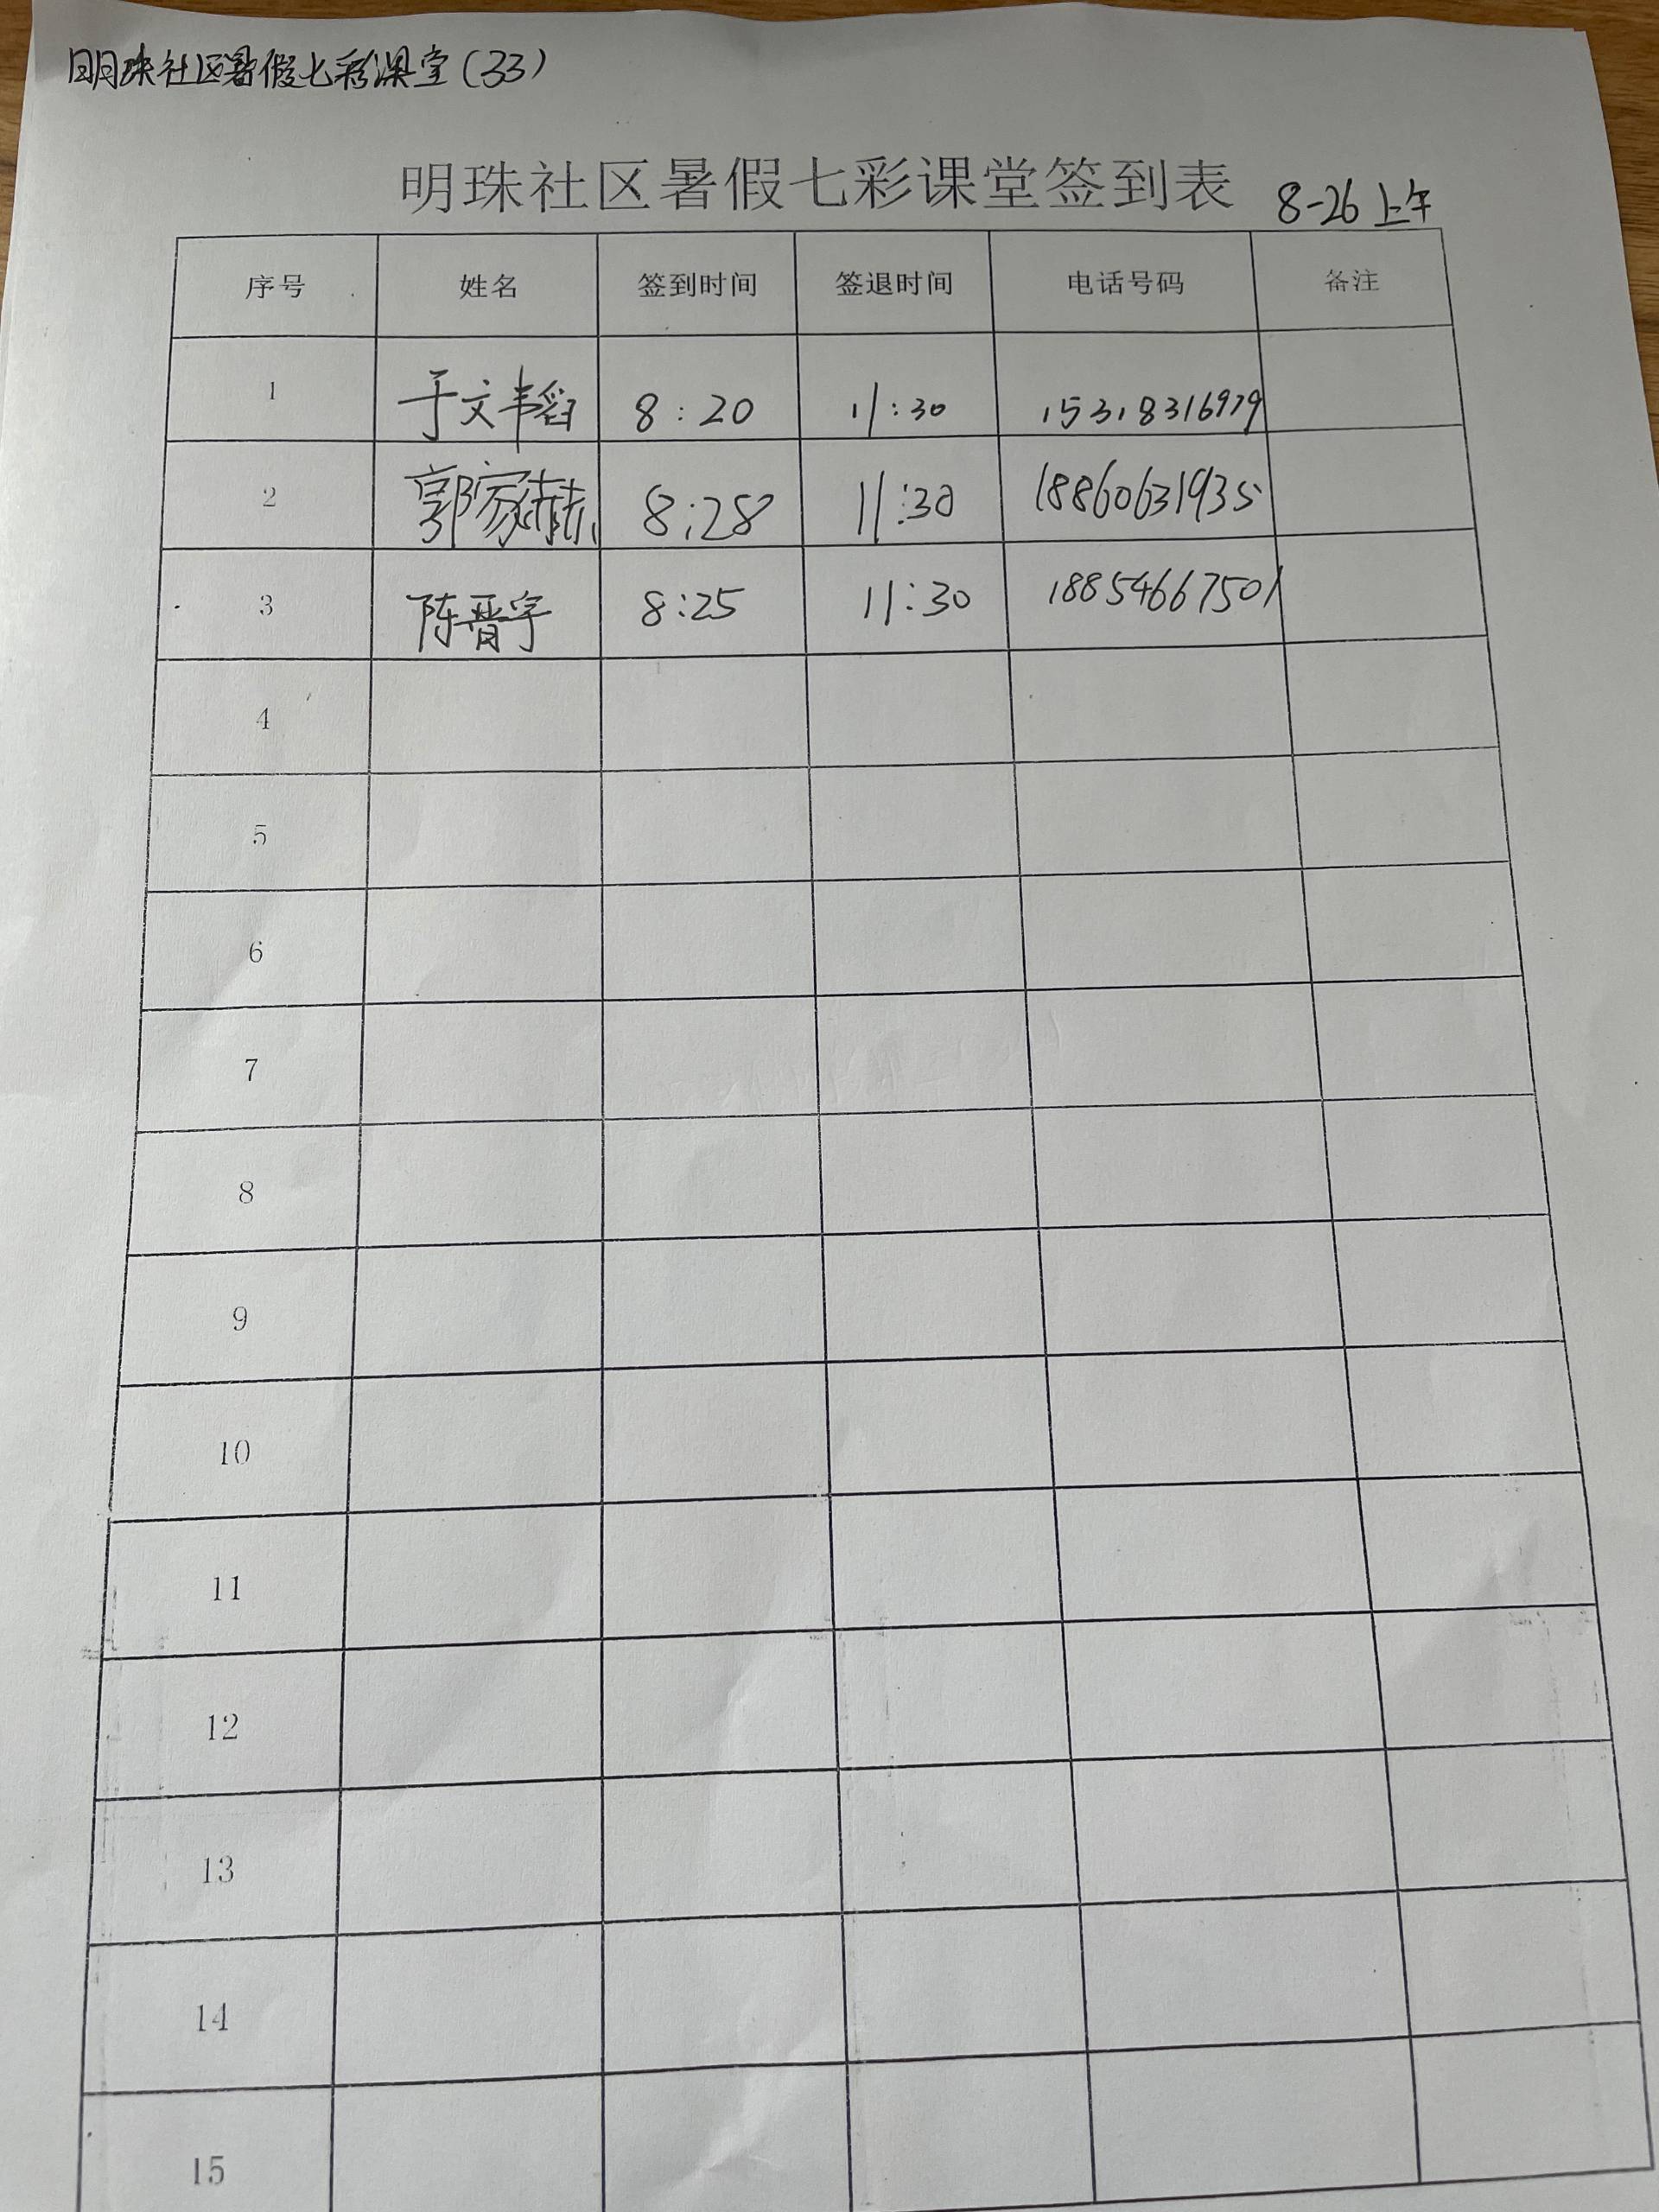 明珠社区暑假七彩课堂(33)
明珠社区暑假七彩课堂签到表 8-26上午
序号 姓名 签到时间 签退时间 电话号码 备注
1 于文韦韬 8:20 11:30 15318316979
2 郭家赫 8:28 11:30 18860631935
3 陈晋宇 8:25 11:30 18854667501
4
5
6
7
8
9
10
11
12
13
14
15